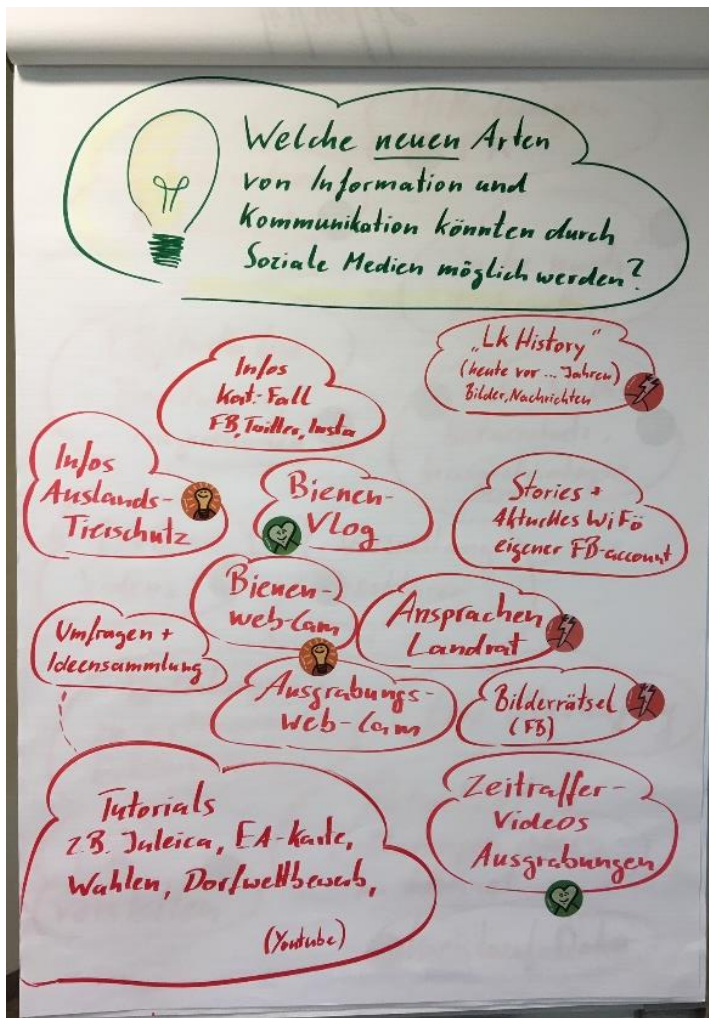 Welche neuen Arten
von Information und
Kommunikation könnten durch
Soziale Medien möglich werden?
"Lk History"
(heute vor ... Jahren)
Bilder, Nachrichten
Infos
Kat.-Fall
FB, Twitter, Insta
Infos
Auslands-
Tierschutz
Bienen-
Vlog
Stories +
Aktuelles WiFö
eigener FB-account
Bienen-
web-Cam
Ansprachen
Landrat
Umfragen +
Ideensammlung
Ausgrabungs-
web-Cam
Bilderrätsel
(FB)
Tutorials
z.B. Juleica, EA-Karte,
Wahlen, Dorfwettbewerb,
(Youtube)
Zeitraffer-
Videos
Ausgrabungen